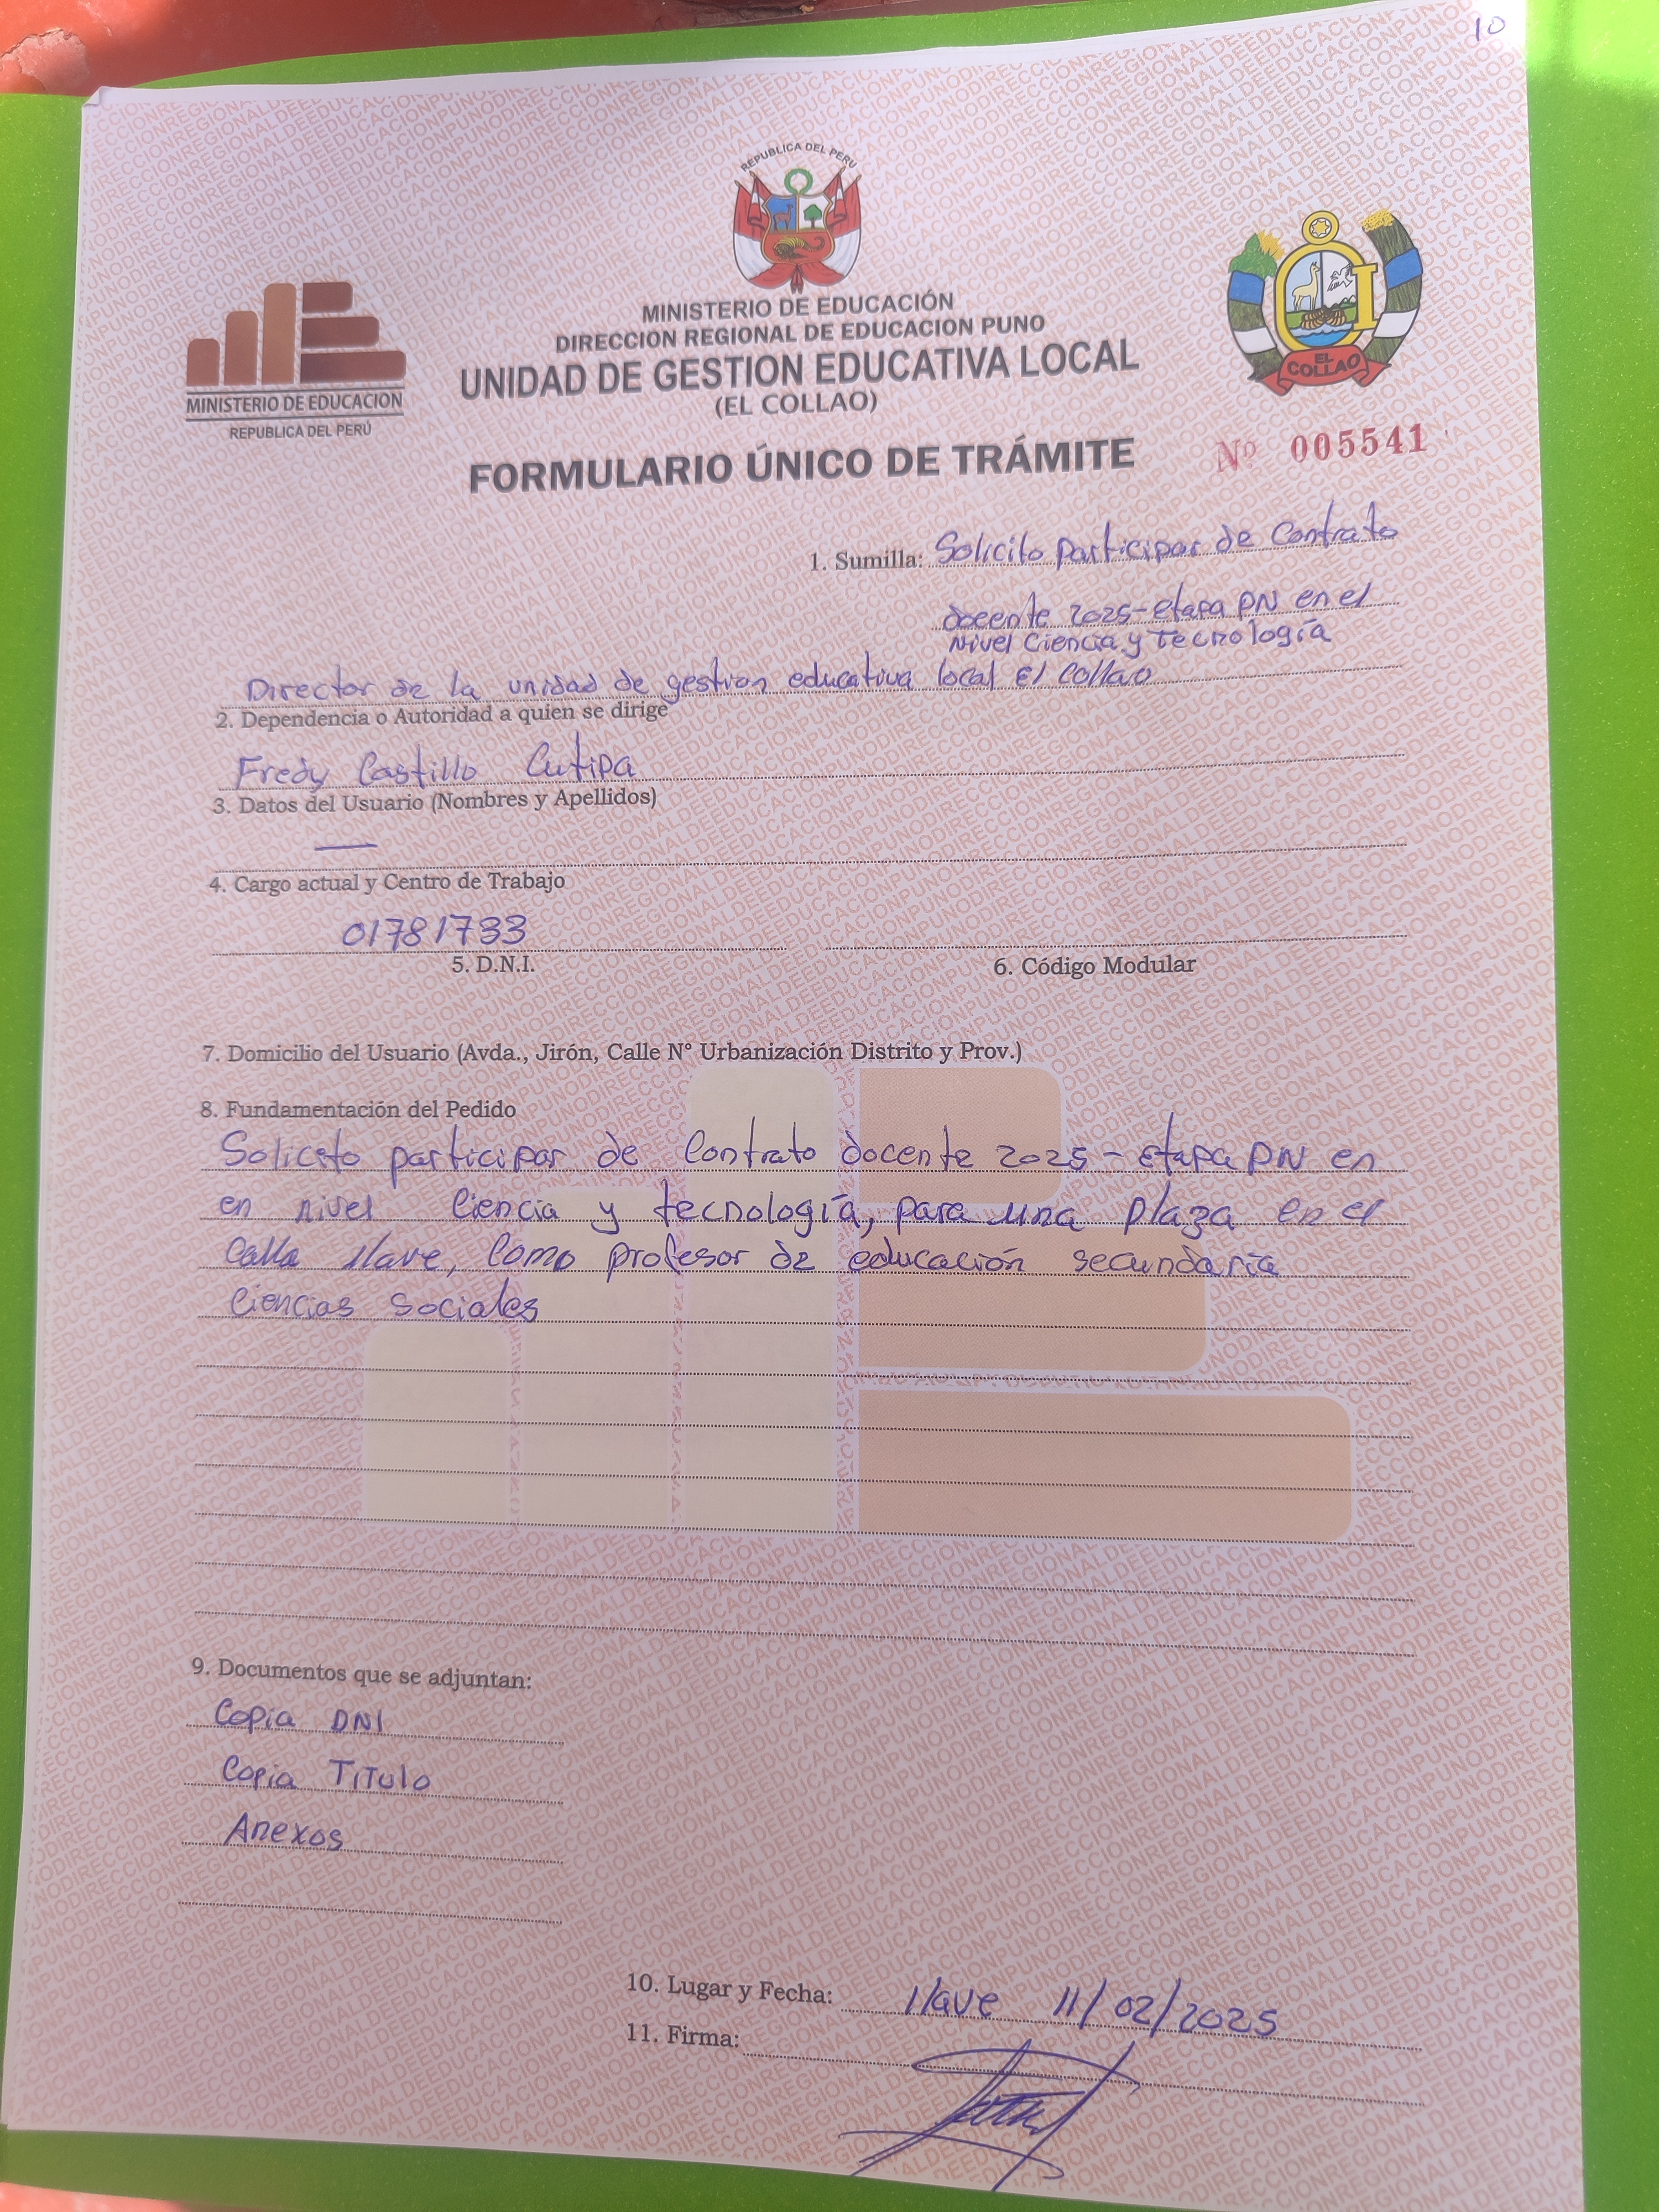 10
REPUBLICA DEL PERU
MINISTERIO DE EDUCACIÓN
DIRECCION REGIONAL DE EDUCACION PUNO
UNIDAD DE GESTION EDUCATIVA LOCAL
(EL COLLAO)
MINISTERIO DE EDUCACION
REPUBLICA DEL PERÚ
EL COLLAO
FORMULARIO ÚNICO DE TRÁMITE
Nº 005541
1. Sumilla: Solicito participar de Contrato
docente 2025-etapa PN en el
Nivel Ciencia y Tecnología
Director de la unidad de gestion educativa local El Collao
2. Dependencia o Autoridad a quien se dirige
Fredy Castillo Cutipa
3. Datos del Usuario (Nombres y Apellidos)
—
4. Cargo actual y Centro de Trabajo
01781733
5. D.N.I.
6. Código Modular
7. Domicilio del Usuario (Avda., Jirón, Calle N° Urbanización Distrito y Prov.)
8. Fundamentación del Pedido
Solicito participar de Contrato docente 2025-etapa PN en
en nivel Ciencia y tecnología, para una plaza en el
Ilave, como profesor de educación secundaria
Ciencias Sociales
9. Documentos que se adjuntan:
Copia DNI
Copia Titulo
Anexos
10. Lugar y Fecha: Ilave 11/02/2025
11. Firma: